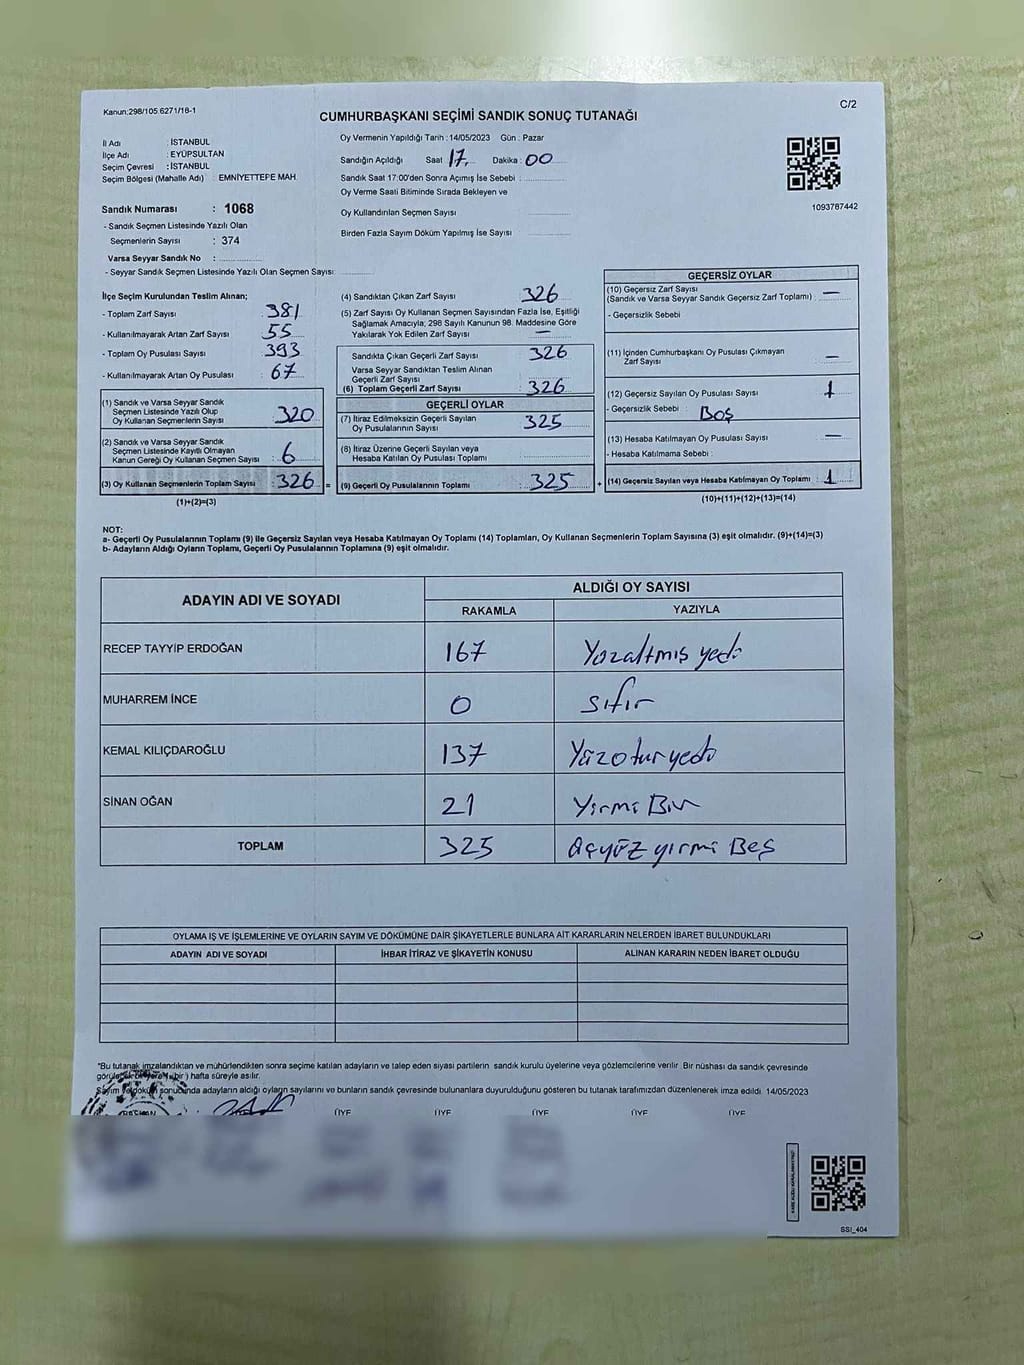 Kanun:298/105 6271/18-1
C/2
CUMHURBAŞKANI SEÇİMİ SANDIK SONUÇ TUTANAĞI
İl Adı : İSTANBUL
İlçe Adı : EYÜPSULTAN
Seçim Çevresi : İSTANBUL
Seçim Bölgesi (Mahalle Adı) EMNİYETTEPE MAH.
Sandık Numarası : 1068
- Sandık Seçmen Listesinde Yazılı Olan
Seçmenlerin Sayısı : 374
Varsa Seyyar Sandık No :
- Seyyar Sandık Seçmen Listesinde Yazılı Olan Seçmen Sayısı:
Oy Vermenin Yapıldığı Tarih : 14/05/2023 Gün : Pazar
Sandığın Açıldığı Saat 17 Dakika : 00
Sandık Saat 17:00'den Sonra Açımış İse Sebebi :
Oy Verme Saati Bitiminde Sırada Bekleyen ve
Oy Kullandırılan Seçmen Sayısı
Birden Fazla Sayım Döküm Yapılmış İse Sayısı
1093787442
İlçe Seçim Kurulundan Teslim Alınan;
- Toplam Zarf Sayısı : 381
- Kullanılmayarak Artan Zarf Sayısı : 55
- Toplam Oy Pusulası Sayısı : 393
- Kullanılmayarak Artan Oy Pusulası : 67
(1) Sandık ve Varsa Seyyar Sandık
Seçmen Listesinde Yazılı Olup
Oy Kullanan Seçmenlerin Sayısı : 320
(2) Sandık ve Varsa Seyyar Sandık
Seçmen Listesinde Kayıtlı Olmayan
Kanun Gereği Oy Kullanan Seçmen Sayısı : 6
(3) Oy Kullanan Seçmenlerin Toplam Sayısı : 326 =
(1)+(2)=(3)
(4) Sandıktan Çıkan Zarf Sayısı 326
(5) Zarf Sayısı Oy Kullanan Seçmen Sayısından Fazla İse, Eşitliği
Sağlamak Amacıyla; 298 Sayılı Kanunun 98. Maddesine Göre
Yakılarak Yok Edilen Zarf Sayısı : —
Sandıkta Çıkan Geçerli Zarf Sayısı 326
Varsa Seyyar Sandıktan Teslim Alınan
Geçerli Zarf Sayısı
(6) Toplam Geçerli Zarf Sayısı : 326
GEÇERLİ OYLAR
(7) İtiraz Edilmeksizin Geçerli Sayılan
Oy Pusulalarının Sayısı : 325
(8) İtiraz Üzerine Geçerli Sayılan veya
Hesaba Katılan Oy Pusulası Toplamı
(9) Geçerli Oy Pusulalarının Toplamı : 325 +
GEÇERSİZ OYLAR
(10) Geçersiz Zarf Sayısı —
(Sandık ve Varsa Seyyar Sandık Geçersiz Zarf Toplamı) :
- Geçersizlik Sebebi
(11) İçinden Cumhurbaşkanı Oy Pusulası Çıkmayan
Zarf Sayısı : —
(12) Geçersiz Sayılan Oy Pusulası Sayısı : 1
- Geçersizlik Sebebi : BOŞ
(13) Hesaba Katılmayan Oy Pusulası Sayısı : —
- Hesaba Katılmama Sebebi :
(14) Geçersiz Sayılan veya Hesaba Katılmayan Oy Toplamı : 1
(10)+(11)+(12)+(13)=(14)
NOT:
a- Geçerli Oy Pusulalarının Toplamı (9) ile Geçersiz Sayılan veya Hesaba Katılmayan Oy Toplamı (14) Toplamları, Oy Kullanan Seçmenlerin Toplam Sayısına (3) eşit olmalıdır. (9)+(14)=(3)
b- Adayların Aldığı Oyların Toplamı, Geçerli Oy Pusulalarının Toplamına (9) eşit olmalıdır.
ADAYIN ADI VE SOYADI ALDIĞI OY SAYISI
RAKAMLA YAZIYLA
RECEP TAYYİP ERDOĞAN 167 Yüzaltmış yedi
MUHARREM İNCE 0 sıfır
KEMAL KILIÇDAROĞLU 137 Yüzotuzyedi
SİNAN OĞAN 21 Yirmi Bir
TOPLAM 325 üçyüz yirmi Beş
OYLAMA İŞ VE İŞLEMLERİNE VE OYLARIN SAYIM VE DÖKÜMÜNE DAİR ŞİKAYETLERLE BUNLARA AİT KARARLARIN NELERDEN İBARET BULUNDUKLARI
ADAYIN ADI VE SOYADI İHBAR İTİRAZ VE ŞİKAYETİN KONUSU ALINAN KARARIN NEDEN İBARET OLDUĞU
"Bu tutanak imzalandıktan ve mühürlendikten sonra seçime katılan adayların ve talep eden siyasi partilerin sandık kurulu üyelerine veya gözlemcilerine verilir. Bir nüshası da sandık çevresinde
bir ) hafta süreyle asılır.
Sayım ve döküm sonucunda adayların aldığı oyların sayılarını ve bunların sandık çevresinde bulunanlara duyurulduğunu gösteren bu tutanak tarafımızdan düzenlenerek imza edildi. 14/05/2023
BAŞKAN ÜYE ÜYE ÜYE ÜYE ÜYE
SSI_404